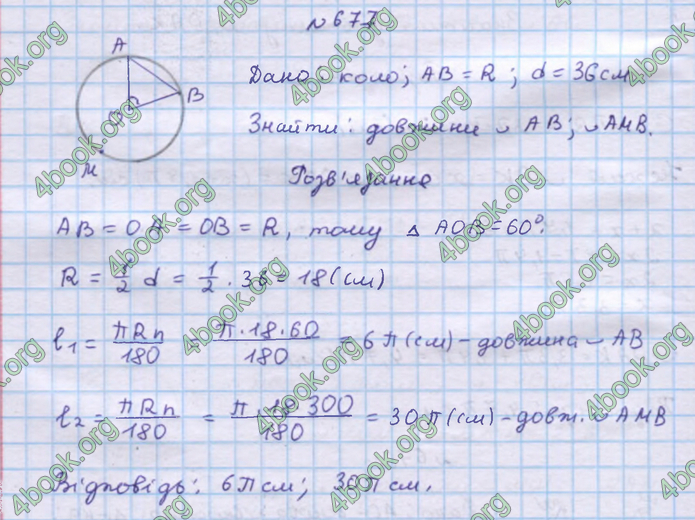 № 677
A
B
O
M
Дано: коло; AB = R; d = 36 см
Знайти: довжини ◡ AB; ◡ AMB.
Розв'язання
AB = OA = OB = R, тому ∆ AOB = 60°.
R = 1/2 d = 1/2 · 36 = 18 (см)
l₁ = πRn/180 = π·18·60/180 = 6π (см) – довжина ◡ AB
l₂ = πRn/180 = π·18·300/180 = 30π (см) – довж. ◡ AMB
Відповідь: 6π см; 30π см.
4book.org